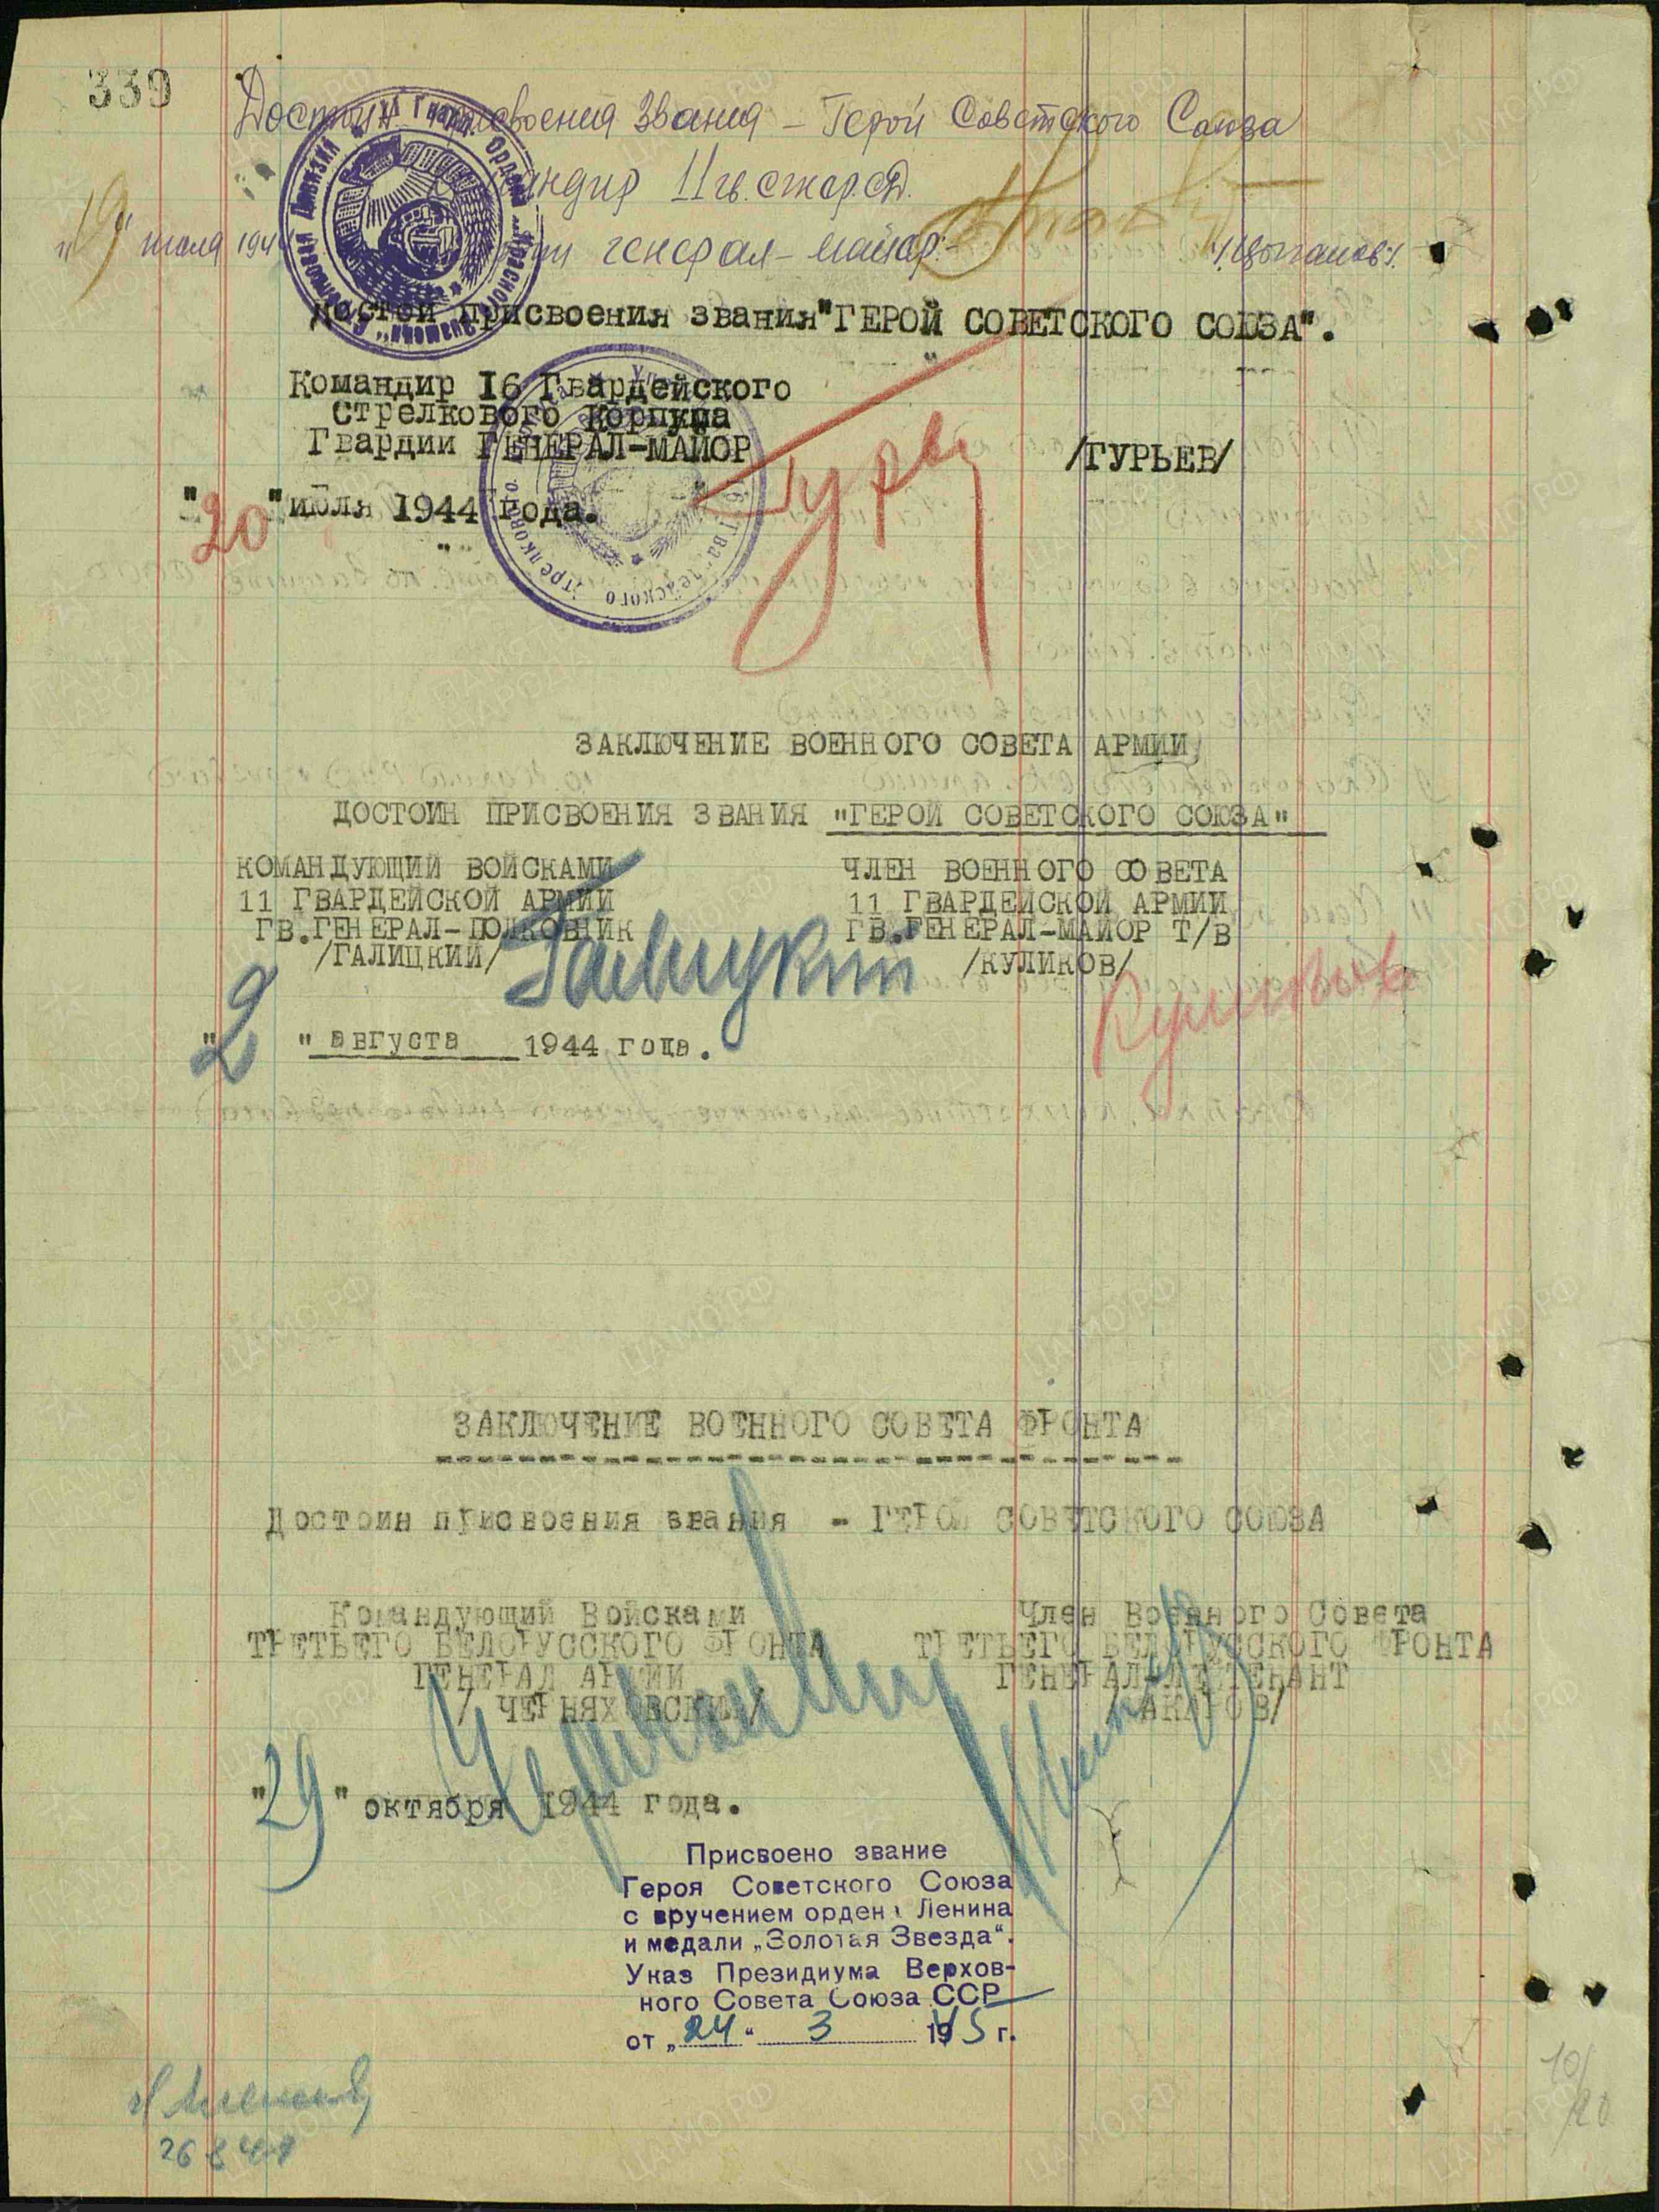 339
Достоин присвоения звания – Герой Советского Союза
Командир 11 гв. стр. д.
"19" июля 194 генерал-майор /Цыганов/.
достой присвоения звания "ГЕРОЙ СОВЕТСКОГО СОЮЗА".
Командир 16 Гвардейского
Стрелкового Корпуса
Гвардии ГЕНЕРАЛ-МАЙОР
/ГУРЬЕВ/
"20" июля 1944 года.
ЗАКЛЮЧЕНИЕ ВОЕННОГО СОВЕТА АРМИИ
ДОСТОИН ПРИСВОЕНИЯ ЗВАНИЯ "ГЕРОЙ СОВЕТСКОГО СОЮЗА"
КОМАНДУЮЩИЙ ВОЙСКАМИ
11 ГВАРДЕЙСКОЙ АРМИИ
ГВ.ГЕНЕРАЛ-ПОЛКОВНИК
/ГАЛИЦКИЙ/
Галицкий
ЧЛЕН ВОЕННОГО СОВЕТА
11 ГВАРДЕЙСКОЙ АРМИИ
ГВ.ГЕНЕРАЛ-МАЙОР Т/В
/КУЛИКОВ/
Куликов
"2" августа 1944 года.
ЗАКЛЮЧЕНИЕ ВОЕННОГО СОВЕТА ФРОНТА
Достоин присвоения звания - ГЕРОЙ СОВЕТСКОГО СОЮЗА
Командующий Войсками
ТРЕТЬЕГО БЕЛОРУССКОГО ФРОНТА
ГЕНЕРАЛ АРМИИ
/ ЧЕРНЯХОВСКИЙ/
Член Военного Совета
ТРЕТЬЕГО БЕЛОРУССКОГО ФРОНТА
ГЕНЕРАЛ-ЛЕЙТЕНАНТ
/МАКАРОВ/
"29" октября 1944 года.
Присвоено звание
Героя Советского Союза
с вручением ордена Ленина
и медали „Золотая Звезда“.
Указ Президиума Верхов-
ного Совета Союза ССР
от „24“ 3 1945 г.